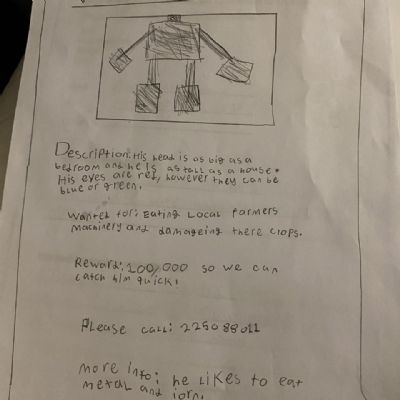 Description: His head is as big as a
bedroom and he is as tall as a house.
His eyes are red, however they can be
blue or green.
Wanted for: Eating Local farmers
Machinery and damageing there crops.
Reward: 100,000 so we can
catch him quick!
Please call: 225088011
More info: he Likes to eat
metal and iorn.